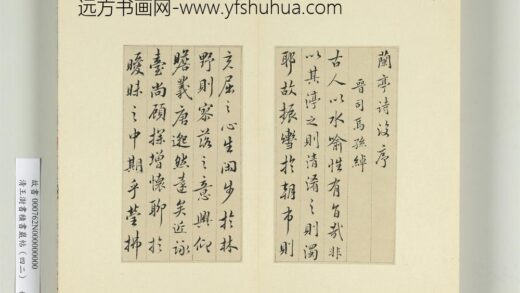 远方书画网-www.yfshuhua.com
蘭亭詩後序
晉司馬孫綽
古人以水喻性有旨哉非
以其渟之則清淆之則濁
耶故振轡於朝市則
充屈之心生閑步於林
野則寥落之意興仰
瞻羲唐邈然遠矣近詠
臺閣顧深增懷聊於
曖昧之中期乎瑩拂
故書 000762N000000000
清王澍書積書巖帖(四二)